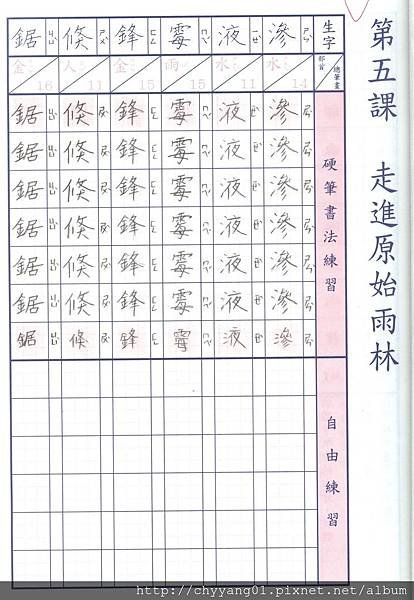 第五課 走進原始雨林
生字 部首 總筆畫 硬筆書法練習 自由練習
滲 ㄕㄣˋ 水 14 滲 滲 滲 滲 滲 滲 滲
液 ㄧㄝˋ 水 11 液 液 液 液 液 液 液
霉 ㄇㄟˊ 雨 15 霉 霉 霉 霉 霉 霉 霉
鋒 ㄈㄥ 金 15 鋒 鋒 鋒 鋒 鋒 鋒 鋒
倏 ㄕㄨˋ 人 11 倏 倏 倏 倏 倏 倏 倏
鋸 ㄐㄩˋ 金 16 鋸 鋸 鋸 鋸 鋸 鋸 鋸
http://chyyang01.pixnet.net/album